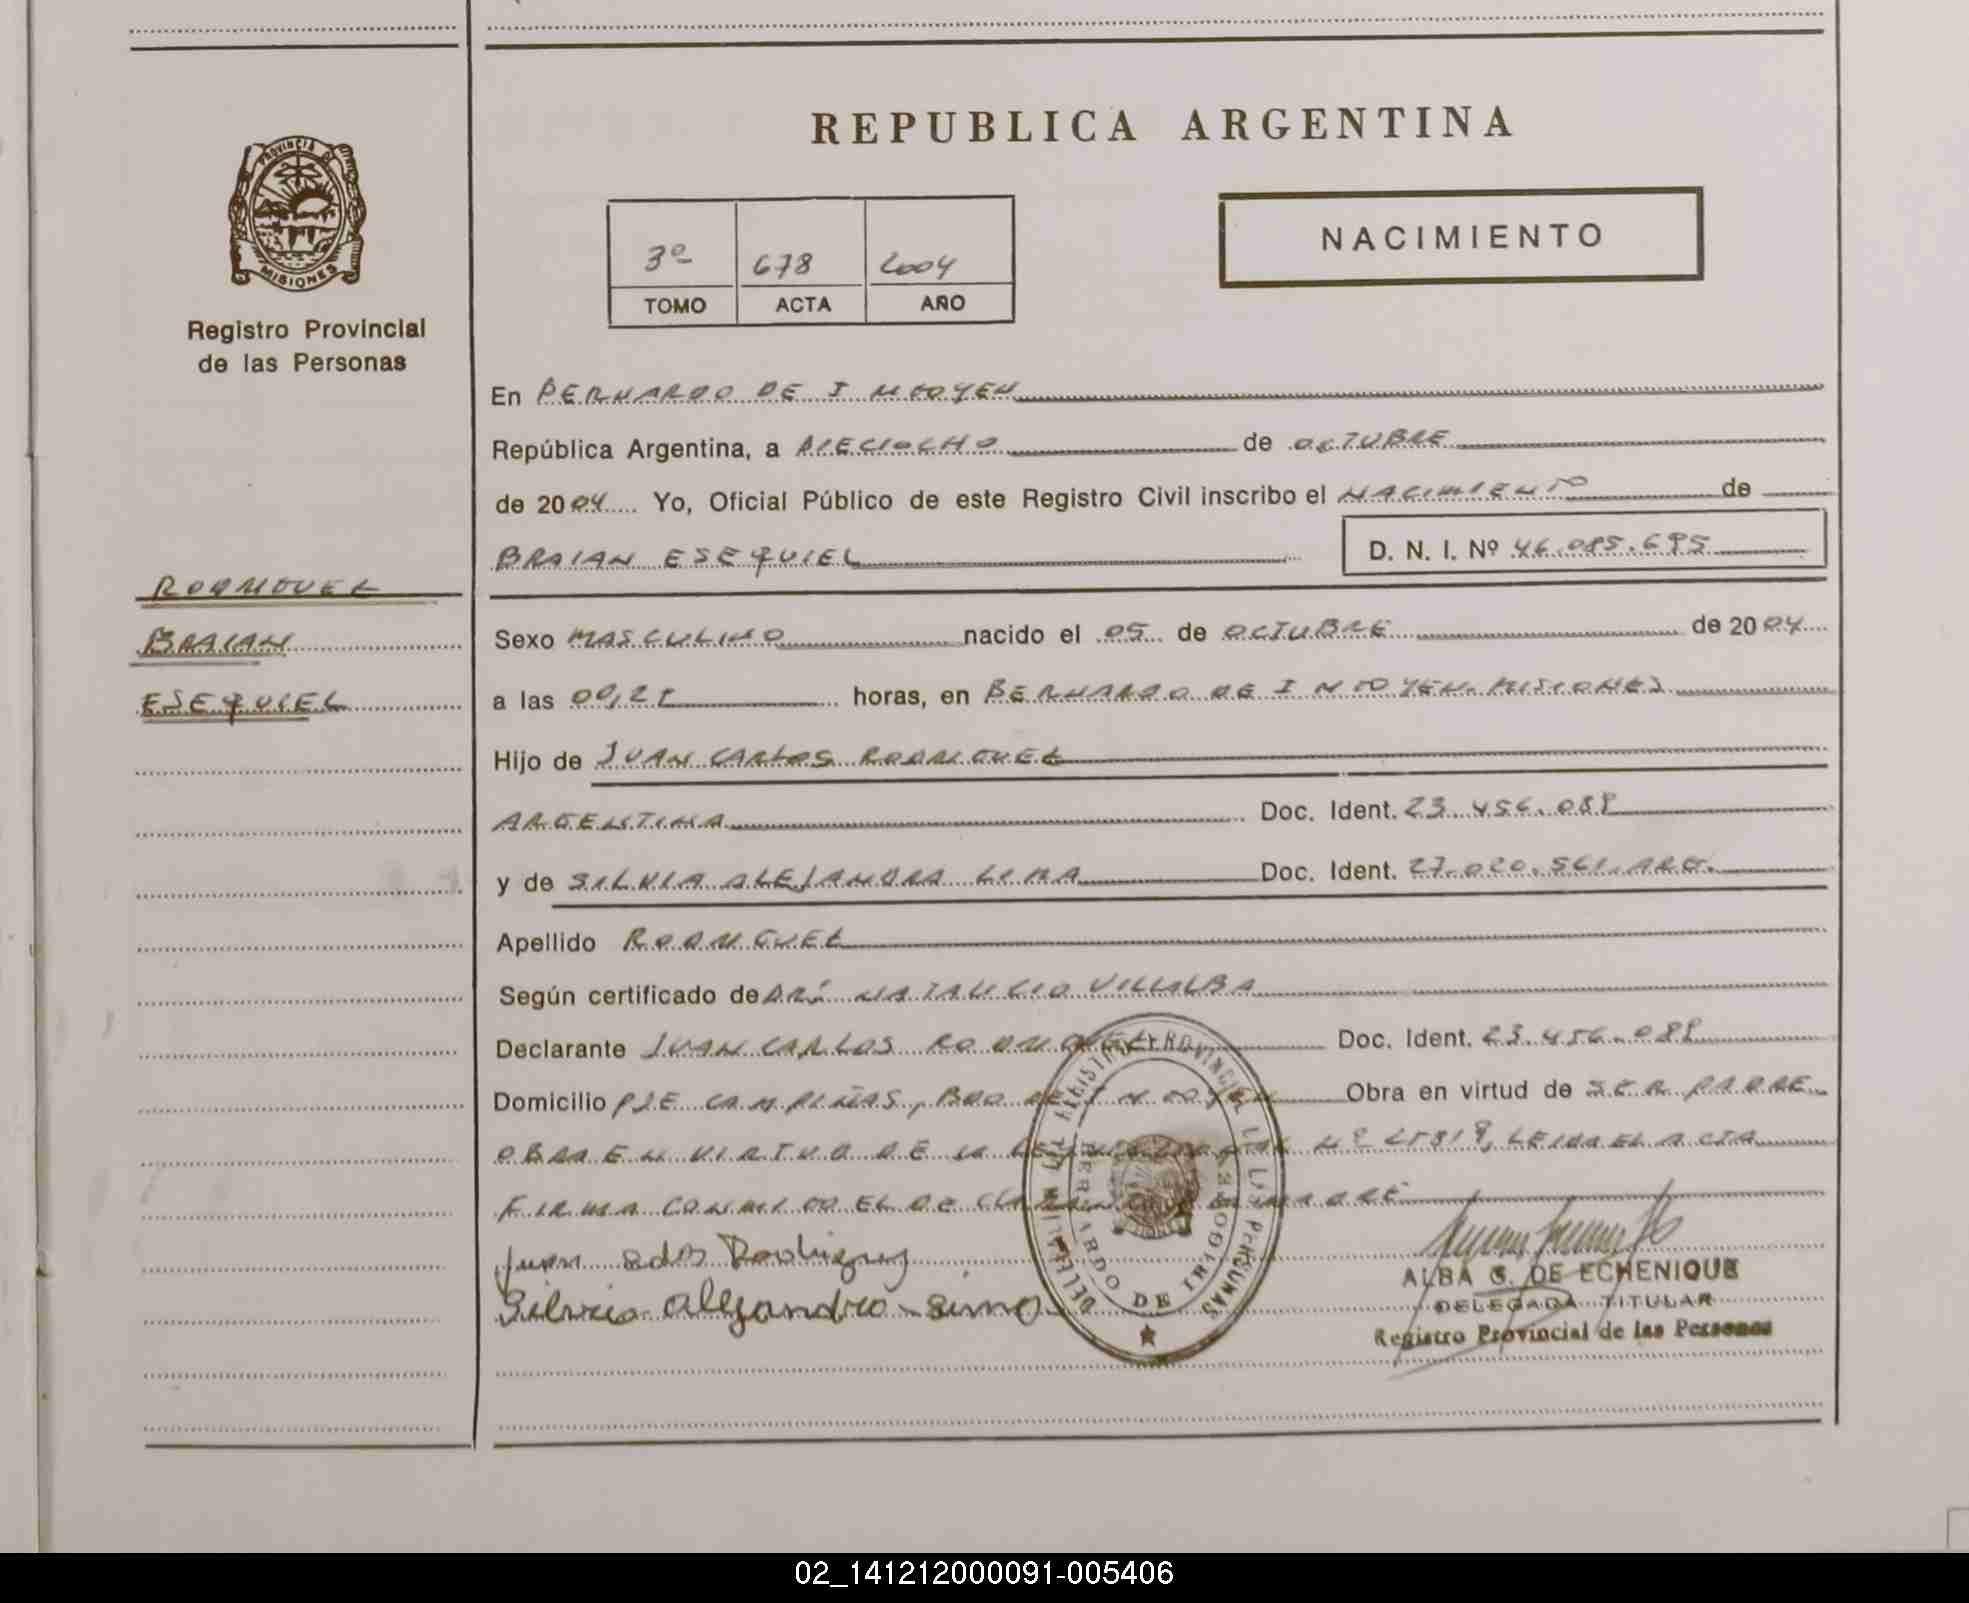 REPUBLICA ARGENTINA
PROVINCIA DE MISIONES
Registro Provincial
de las Personas
3º 678 2004
TOMO ACTA AÑO
NACIMIENTO
En BERNARDO DE IRIGOYEN
República Argentina, a DIECIOCHO de OCTUBRE
de 2004 Yo, Oficial Público de este Registro Civil inscribo el NACIMIENTO de
BRAIAN ESEQUIEL D. N. I. Nº 46.085.695
RODRIGUEZ
BRAIAN
ESEQUIEL
Sexo MASCULINO nacido el 05 de OCTUBRE de 2004
a las horas, en BERNARDO DE IRIGOYEN. MISIONES
Hijo de JUAN CARLOS RODRIGUEZ
ARGENTINA Doc. Ident. 23.456.088
y de SILVIA ALEJANDRA Doc. Ident. 27.020.561. ARG.
Apellido RODRIGUEZ
Según certificado de DR. NATALICIO VILLALBA
Declarante JUAN CARLOS RODRIGUEZ Doc. Ident. 23.456.088
Domicilio PJE CAMPIÑAS, BDO DE IRIGOYEN Obra en virtud de SER PADRE
OBRA EN VIRTUD DE LA LEY Nº LEIDA EL ACTA
FIRMA CONMIGO EL DECLARANTE MADRE
Juan Rodriguez
Silvia Alejandra
REGISTRO PROVINCIAL DE LAS PERSONAS
BERNARDO DE IRIGOYEN
ALBA G. DE ECHENIQUE
DELEGADA TITULAR
Registro Provincial de las Personas
02_141212000091-005406